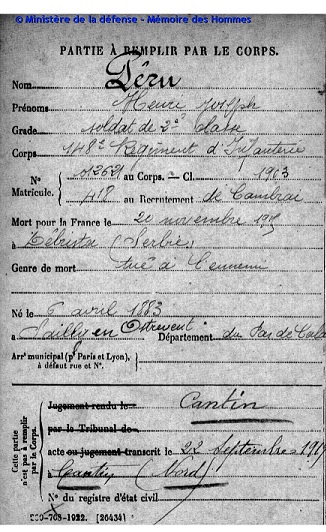 © Ministère de la défense - Mémoire des Hommes
PARTIE À REMPLIR PAR LE CORPS.
Nom
Prénoms Henri
Grade soldat de 2e Classe
Corps 148e Régiment d'Infanterie
N° Matricule. au Corps. - Cl. 1903
au Recrutement de Cambrai
Mort pour la France le novembre
à (Serbie)
Genre de mort Tué à l'ennemi
Né le 6 avril 1883
à Sailly en Ostrevent Département du Pas de Calais
Arrt municipal (pr Paris et Lyon),
à défaut rue et N°.
Cette partie n'est pas à remplir par le Corps.
Jugement rendu le Cantin
par le Tribunal de
acte ou jugement transcrit le 22 Septembre 1917
à Cantin (Nord)
N° du registre d'état civil
-708-1922. [26434]